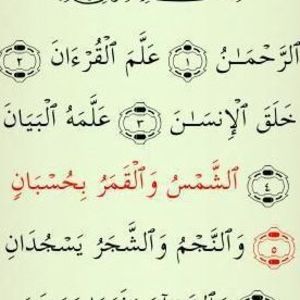 ٱلرَّحۡمَـٰنُ ١ عَلَّمَ ٱلۡقُرۡءَانَ ٢
خَلَقَ ٱلۡإِنسَـٰنَ ٣ عَلَّمَهُ ٱلۡبَيَانَ
٤ ٱلشَّمۡسُ وَٱلۡقَمَرُ بِحُسۡبَانٍ
٥ وَٱلنَّجۡمُ وَٱلشَّجَرُ يَسۡجُدَانِ